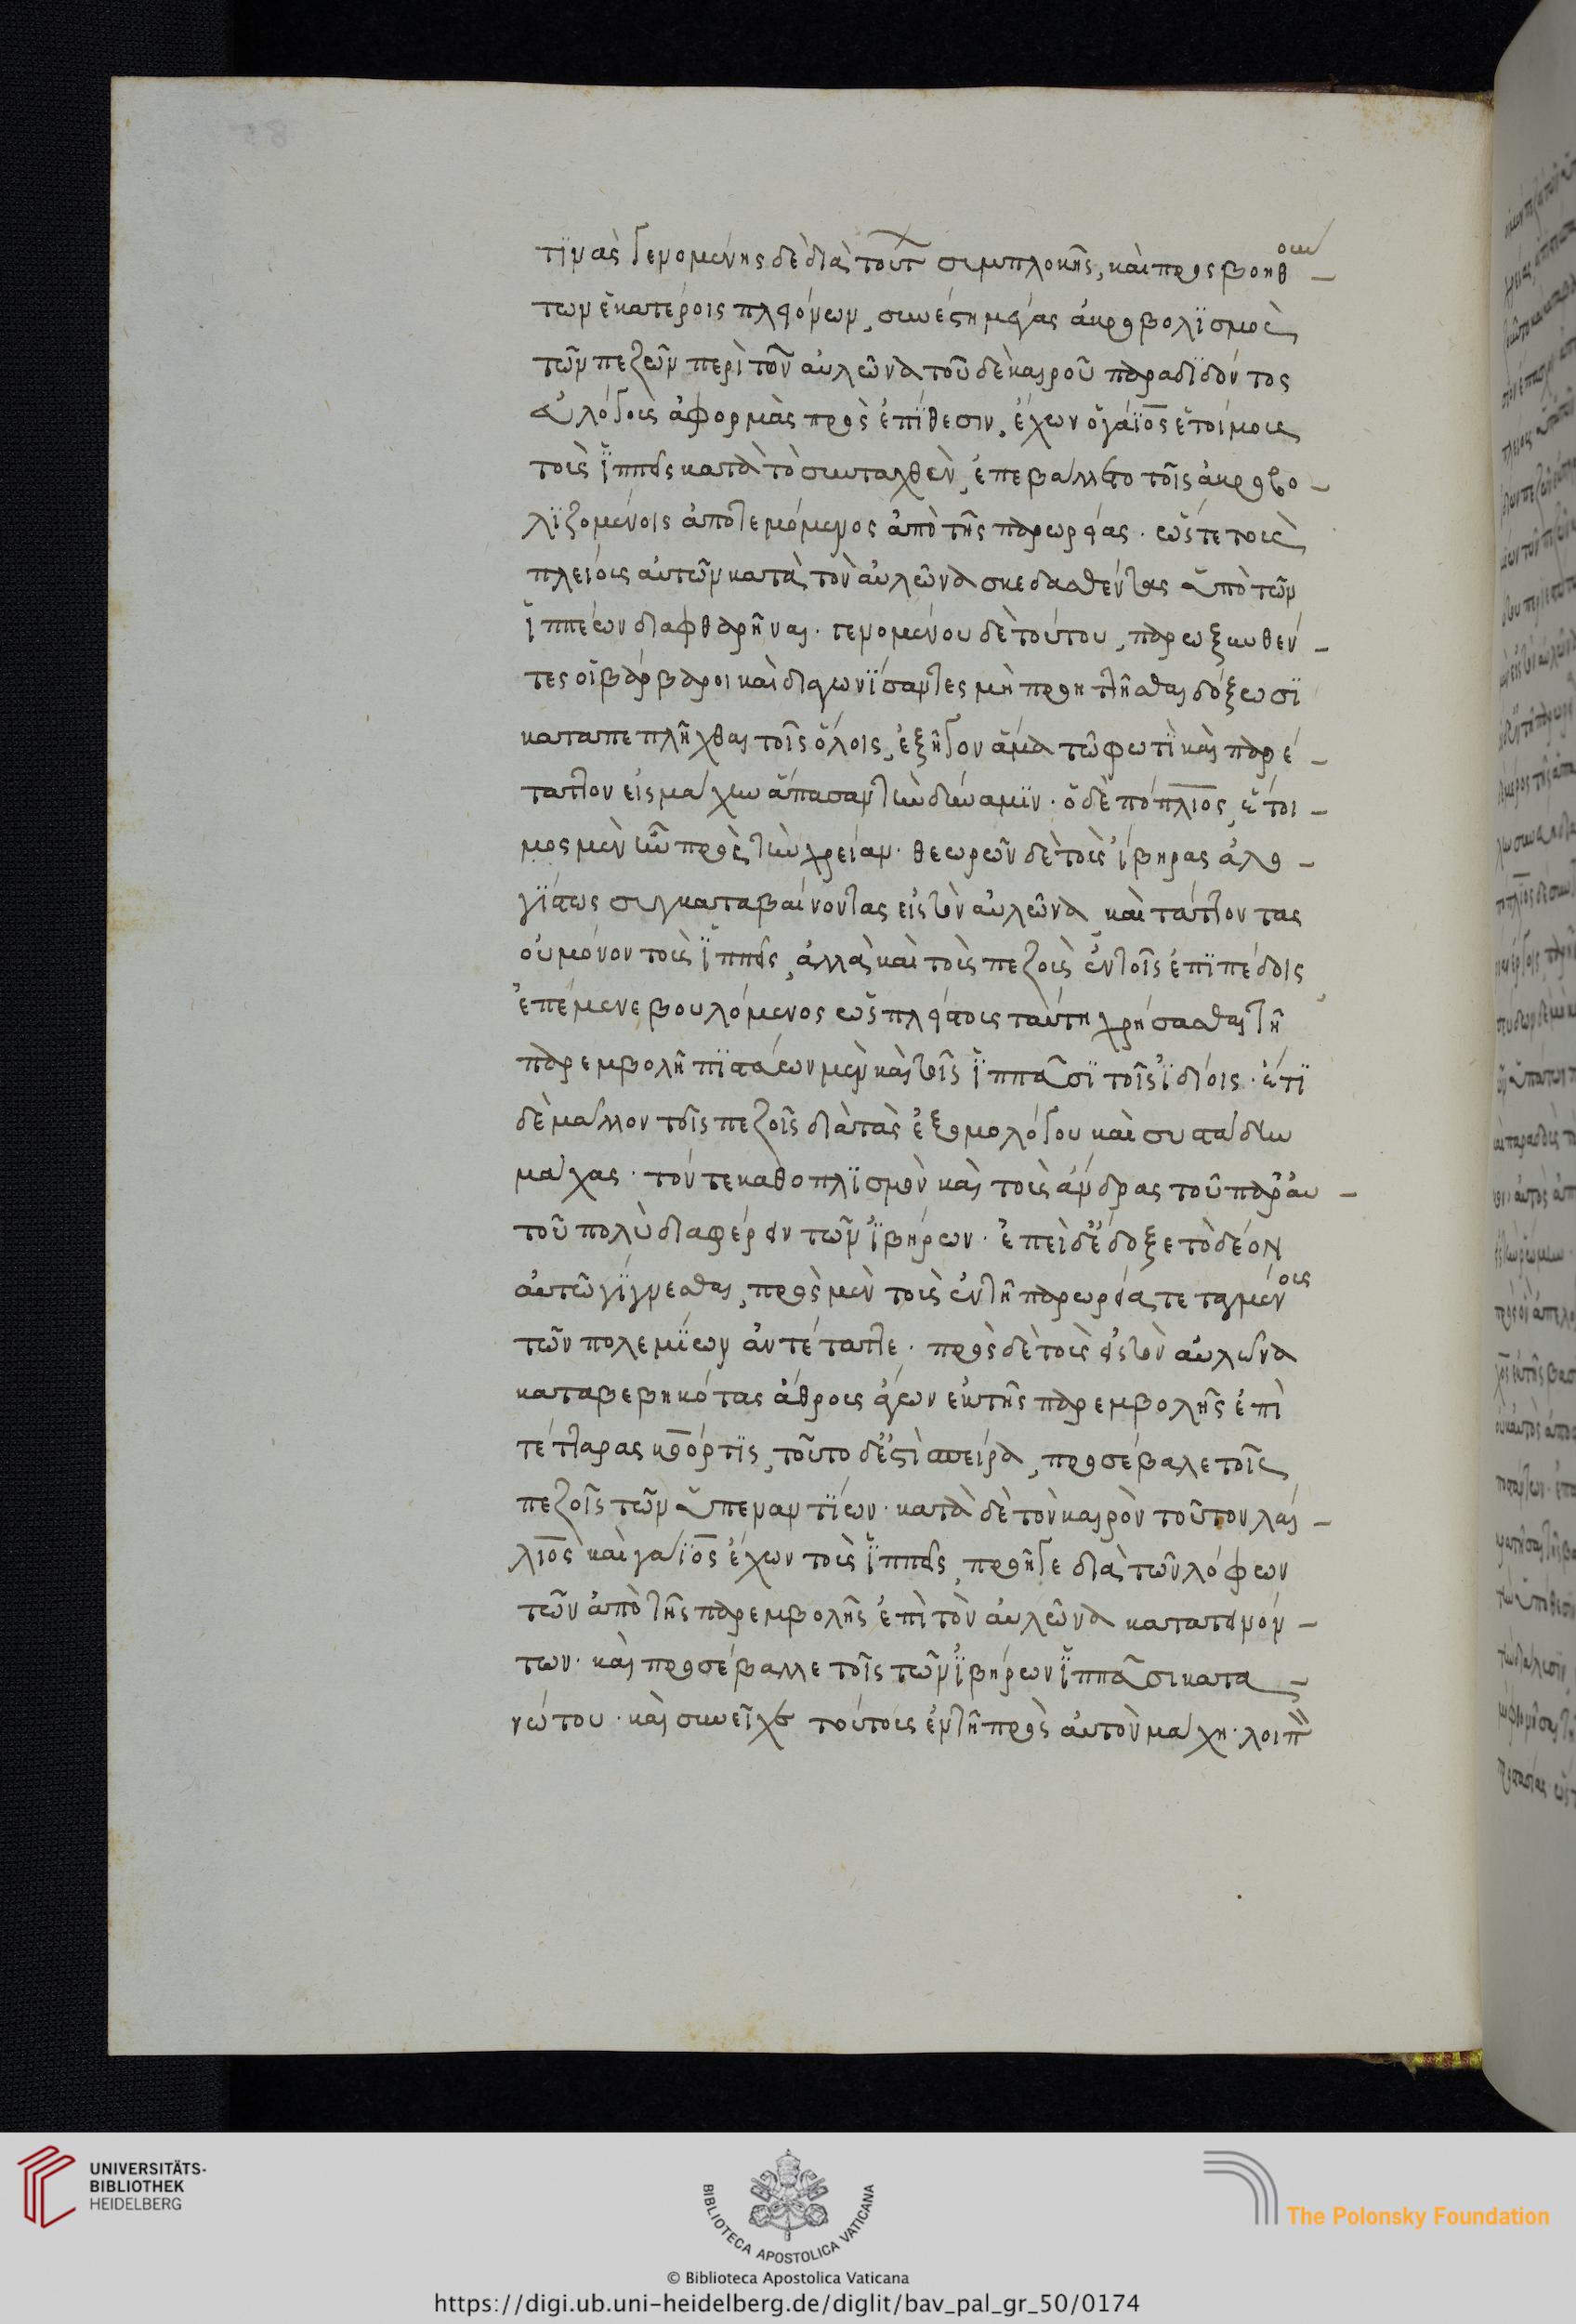 τϊνὰς γενομένης δὲ διὰ τοῦτ συμπλοκῆς, καὶ προςβοηθούν–
των ἑκατέροις πλειόνων, συνέστη μέγας ἀκροβολϊσμὸς
τῶν πεζῶν περὶ τὸν αὐλῶνα τοῦ δὲ καιροῦ παραδϊδόντος
εὐλόγους ἀφορμὰς πρὸς ἐπίθεσιν, ἔχων ὁ γάϊος ἑτοίμους
τοὺς ἵππεις κατὰ τὸ συνταχθὲν, ἐπεβάλλετο τοῖς ἀκροβο–
λϊζομένοις ἀποτεμόμενος ἀπὸ τῆς παρωρείας. ὥστε τοὺς
πλείους αὐτῶν κατὰ τὸν αὐλῶνα σκεδασθέντας ὑπὸ τῶν
ἱππέων διαφθαρῆναι. γενομένου δὲ τούτου, παρωξυνθέν–
τες οἱ βάρβαροι καὶ διαγωνϊάσαντες μὴ προηττῆσθαι δόξωσϊ
καταπεπλῆχθαι τοῖς ὅλοις, ἐξῆγον ἅμα τῷ φωτὶ καὶ παρέ–
ταττον εἰς μάχην ἅπασαν τὴν δύναμϊν. ὁ δὲ πόπλιος, ἕτοι–
μος μὲν ἦν πρὸς τὴν χρείαν. θεωρῶν δὲ τοὺς ἴβηρας ἀλο–
γίστως συγκαταβαίνοντας εἰς τὸν αὐλῶνα καὶ τάττοντας
οὐ μόνον τοὺς ἵππεις, ἀλλὰ καὶ τοὺς πεζοὺς ἐν τοῖς ἐπϊπέδοις
ἐπέμενε βουλόμενος ὡς πλείστοις ταύτῃ χρήσασθαι τῇ
παρεμβολῇ πϊστεύων μὲν καὶ τοῖς ἱππεῦσϊ τοῖς ἰδίοις. ἔτϊ
δὲ μᾶλλον τοῖς πεζοῖς διὰ τὰς ἐξ ὁμολόγου καὶ συστάδην
μάχας. τόν τε καθοπλϊσμὸν καὶ τοὺς ἄνδρας τοῦ παρ' αὐ–
τοῦ πολὺ διαφέρειν τῶν ἰβήρων. ἐπεὶ δ' ἔδοξε τὸ δέον
αὐτῷ γίγνεσθαι, πρὸς μὲν τοὺς ἐν τῇ παρωρείᾳ τεταγμένους
τῶν πολεμίων ἀντέταττε. πρὸς δὲ τοὺς εἰς τὸν αὐλῶνα
καταβεβηκότας ἄθρους ἄγων ἐκ τῆς παρεμβολῆς ἐπὶ
τέτταρας κοόρτϊς, τοῦτο δ' ἔστὶ σπεῖρα, προσέβαλε τοῖς
πεζοῖς τῶν ὑπεναντίων. κατὰ δὲ τὸν καιρὸν τοῦτον λαί–
λιος καὶ γάϊος ἔχων τοὺς ἵππεις, προῆγε διὰ τῶν λόφων
τῶν ἀπὸ τῆς παρεμβολῆς ἐπὶ τὸν αὐλῶνα κατατεινόν–
των. καὶ προσέβαλλε τοῖς τῶν ἰβήρων ἱππεῦσι κατα–
νώτου. καὶ συνεῖχε τούτους ἐν τῇ πρὸς αὐτὸν μάχῃ. λοιπὸν
UNIVERSITÄTS-
BIBLIOTHEK
HEIDELBERG
BIBLIOTECA APOSTOLICA VATICANA
The Polonsky Foundation
© Biblioteca Apostolica Vaticana
https://digi.ub.uni-heidelberg.de/diglit/bav_pal_gr_50/0174